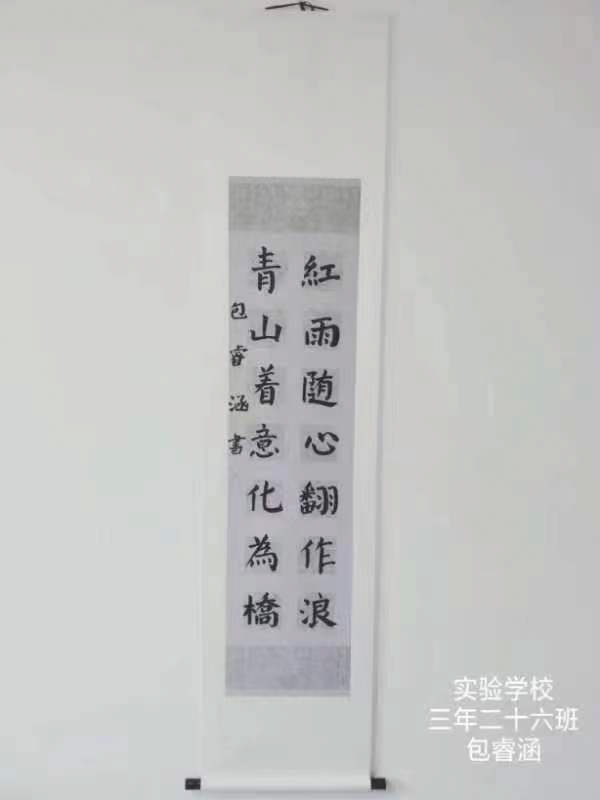 紅雨随心翻作浪
青山着意化為橋
包睿涵書
实验学校
三年二十六班
包睿涵